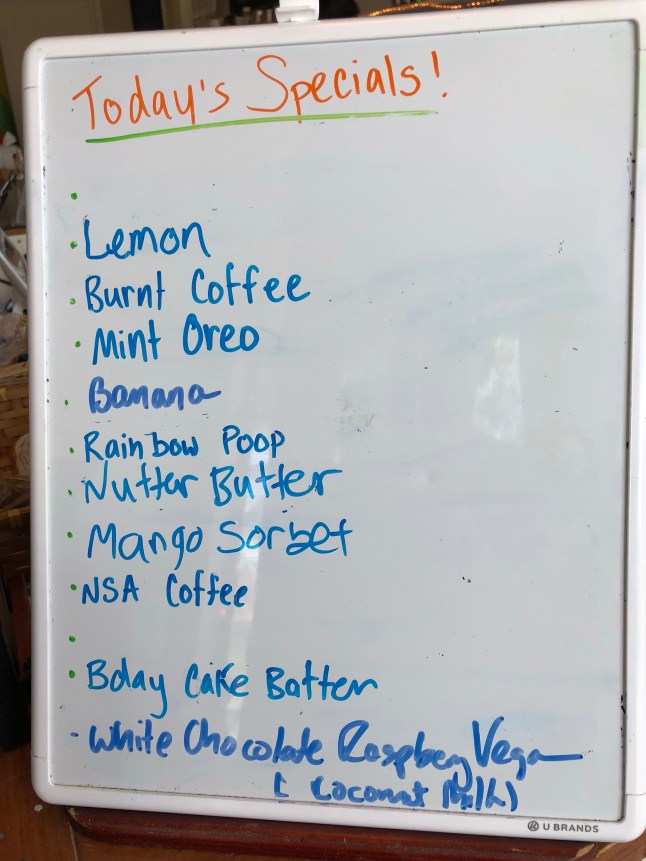 Today's Specials!
Lemon
Burnt Coffee
Mint Oreo
Banana
Rainbow Poop
Nutter Butter
Mango Sorbet
NSA Coffee
Bday Cake Batter
- White Chocolate Raspbery Vegan
( Coconut Milk)
U BRANDS